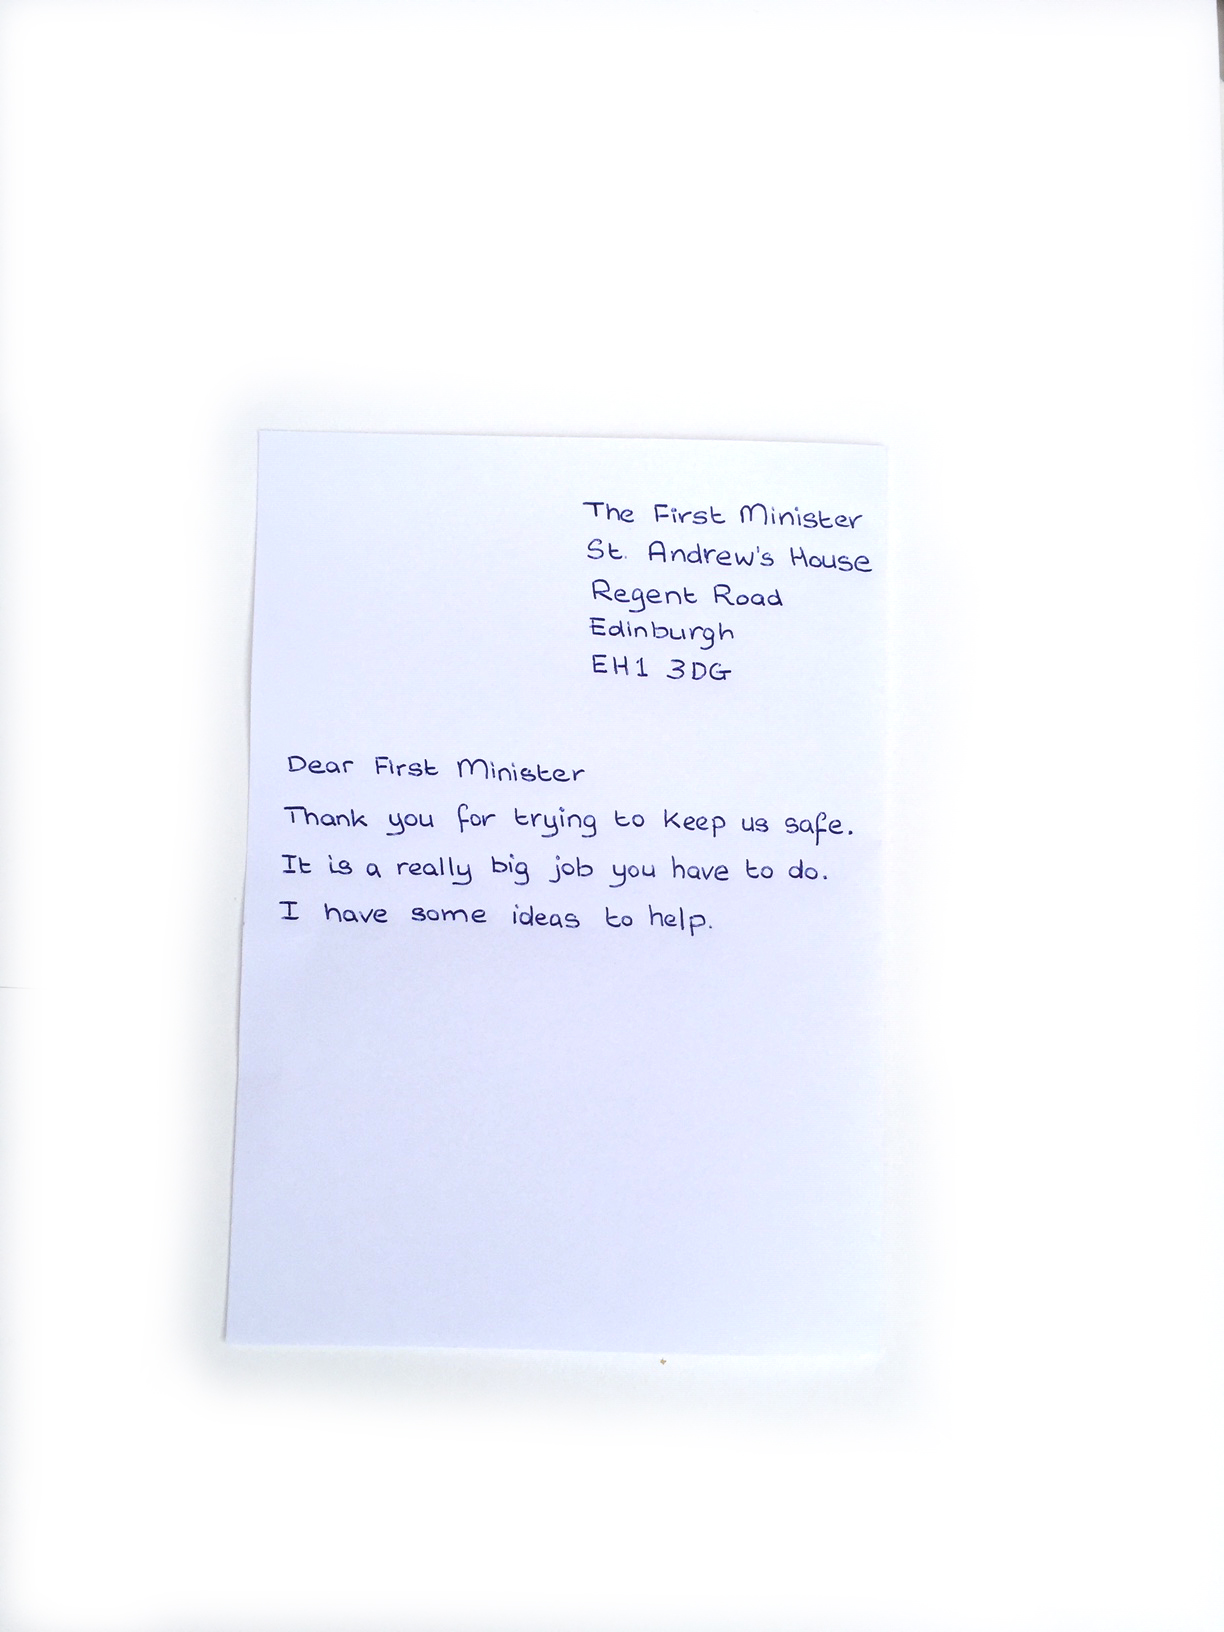 The First Minister
St. Andrew's House
Regent Road
Edinburgh
EH1 3DG
Dear First Minister
Thank you for trying to keep us safe.
It is a really big job you have to do.
I have some ideas to help.